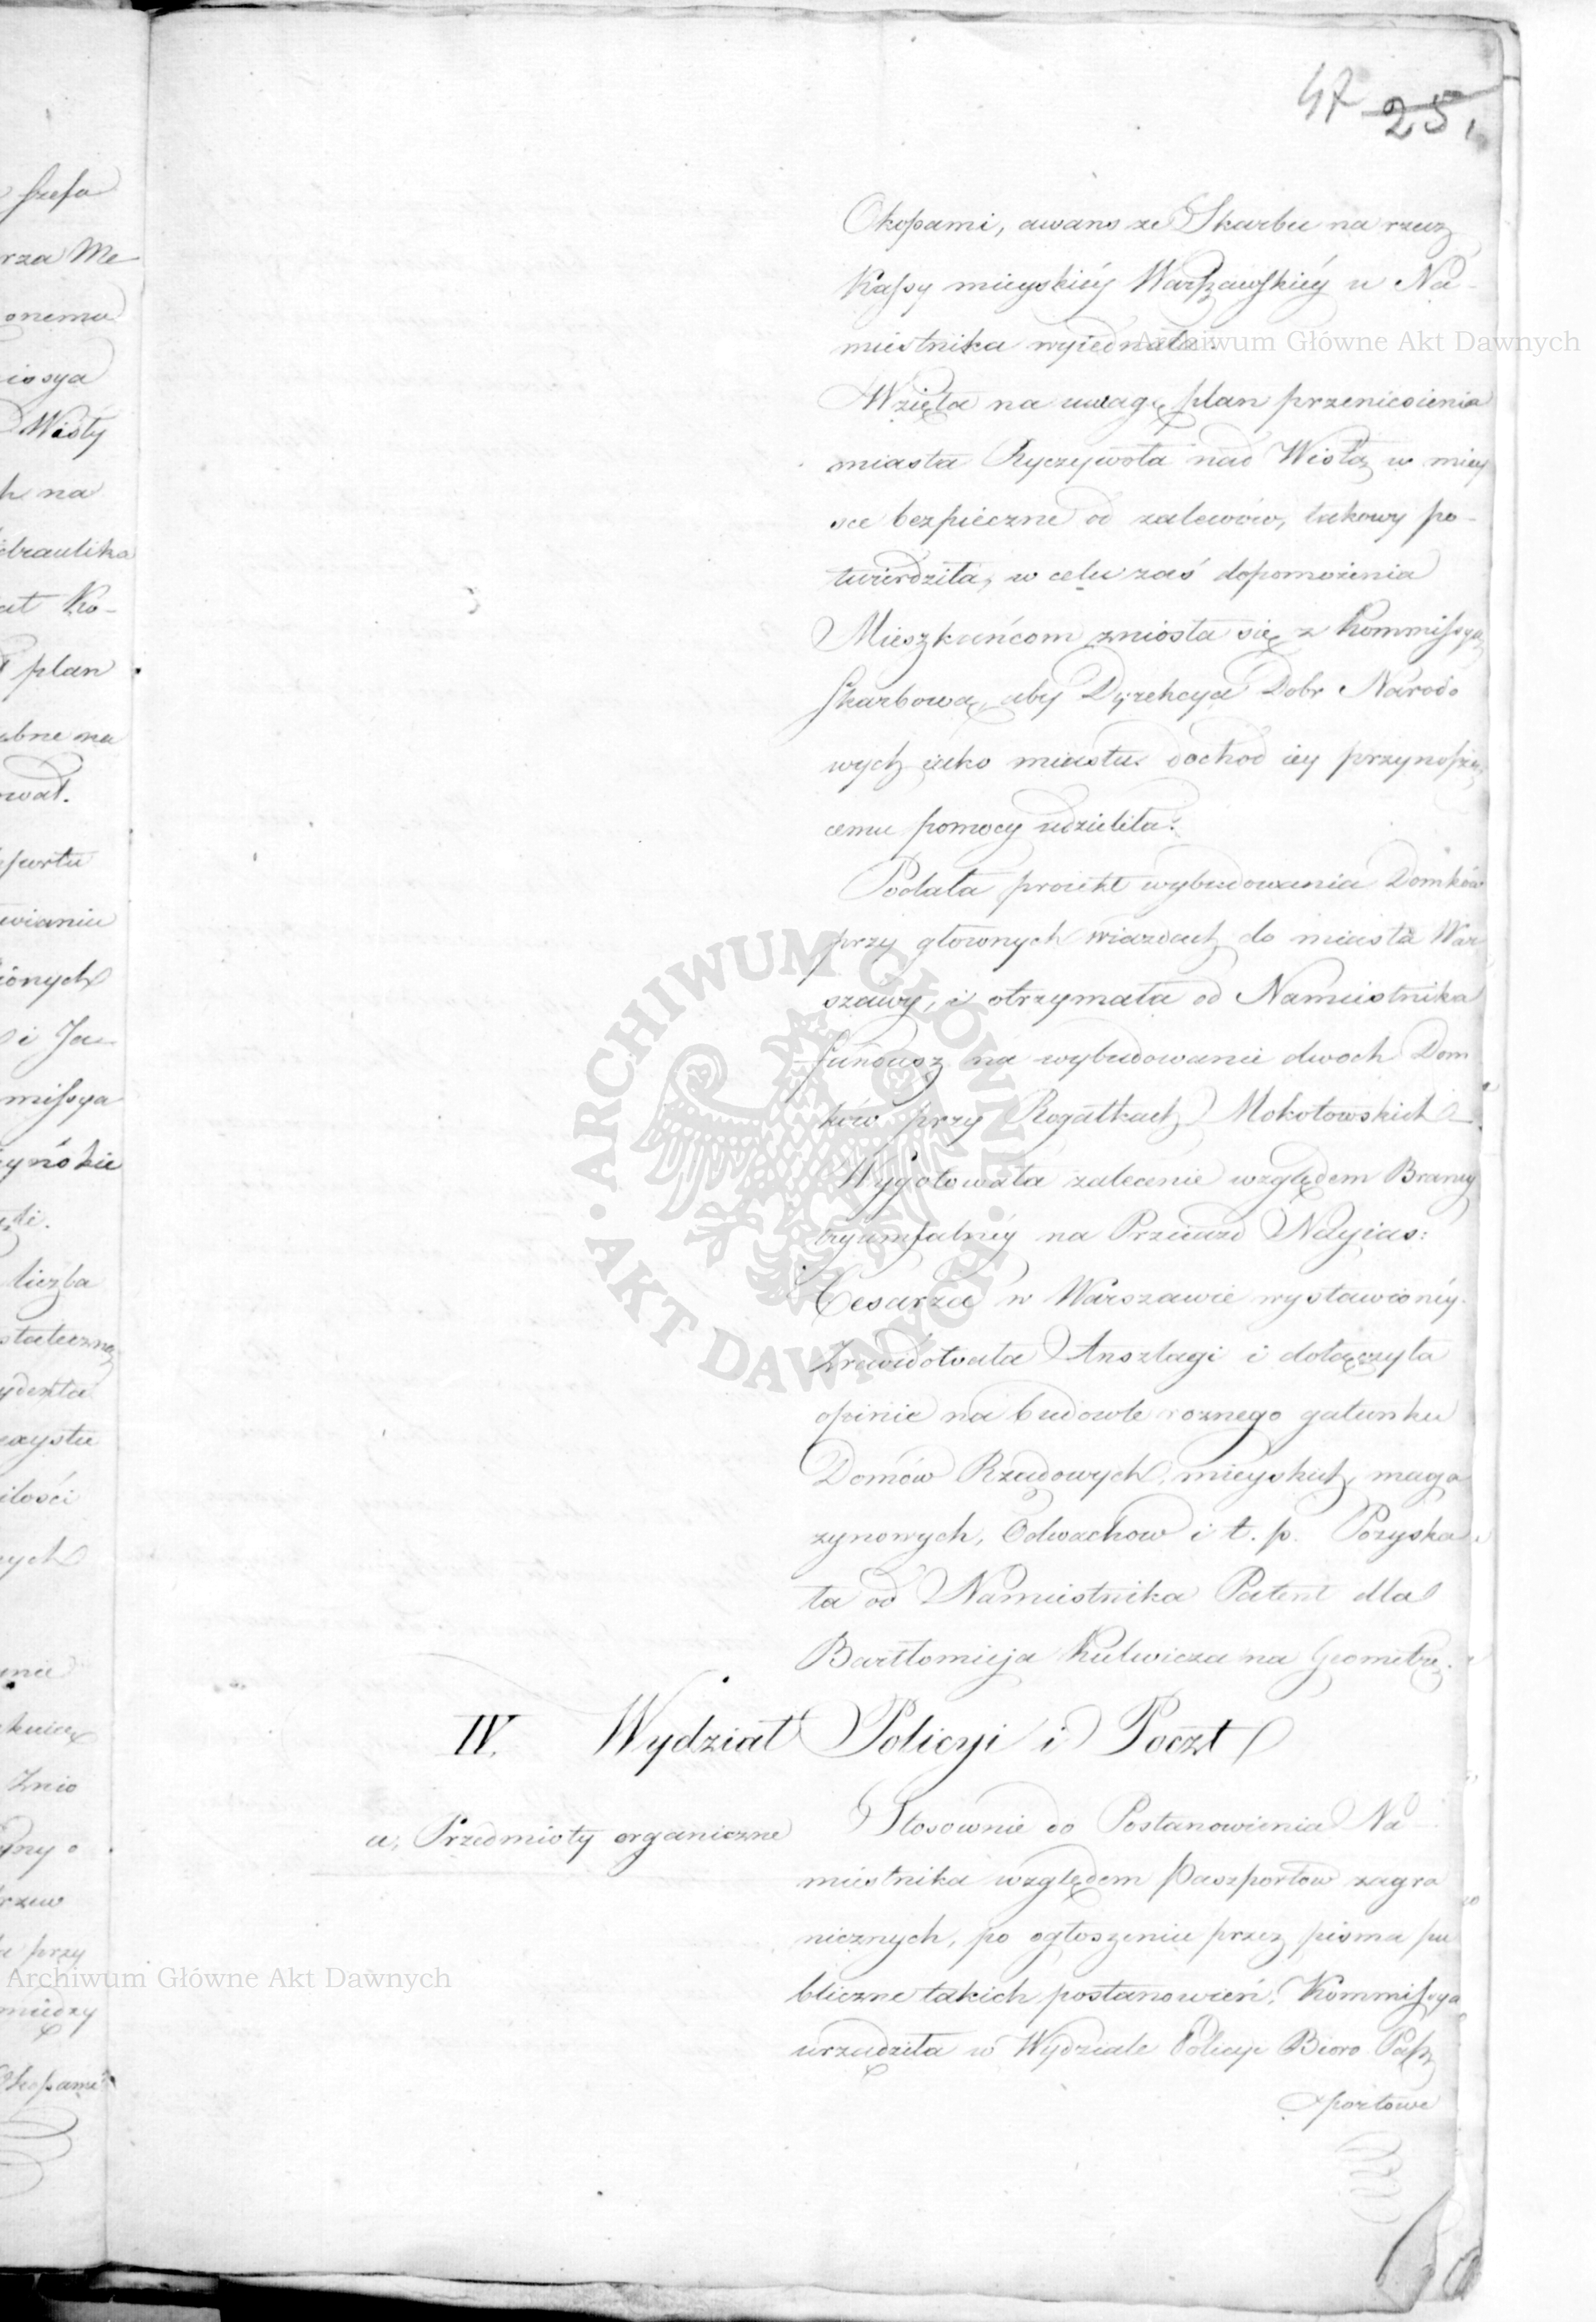 47 25.
Okopami, awans ze Skarbu na rzecz
Kassy mieyskiéy Warszawskiéy u Na-
miestnika wyiednała.
Archiwum Główne Akt Dawnych
Wzięła na uwagę plan przeniesienia
miasta Ryczywoła nad Wisłą w miey
sce bezpieczne od zalewów, takowy po-
twierdziła, w celu zaś dopomożenia
Mieszkańcom zniosła się z Kommissyą
Skarbową, aby Dyrekcya Dobr Narodo
wych iako miastu dochod iey przynoszą
cemu pomocy udzieliła.
Podała proiekt wybudowania Domków
przy głownych wiazdach do miasta War
szawy, i otrzymała od Namiestnika
fundusz na wybudowanie dwoch Dom
ków przy Rogatkach Mokotowskich
Wygotowała zalecenie względem Bramy
tryumfalnéy na Przeiazd Nayias:
Cesarza w Warszawie wystawionéy.
Zrewidowała Anszlagi i dołączyła
opinie na budowle roznego gatunku
Domów Rządowych, mieyskich, maga
zynowych, Odwachow i t. p. Pozyska
ła od Namiestnika Patent dla
Bartłomieja Kulwicza na Geometrę.
IV. Wydział Policyi i Poczt
a, Przedmioty organiczne
Stosownie do Postanowienia Na
miestnika względem Paszportow zagra
nicznych, po ogłoszeniu przez pisma pu
bliczne takich postanowień, Kommissya
urządziła w Wydziale Policyi Bioro Pasz
portowe
ARCHIWUM GŁÓWNE
AKT DAWNYCH
szefa
rza Me
onemu
issya
Wisły
h na
draulika
at Ko-
plan
ebne na
wał.
wianiu
ionych
i Ja-
missya
liczba
stateczną
ydenta
ilości
ych
Znio
przy
Archiwum Główne Akt Dawnych
między
Okopami